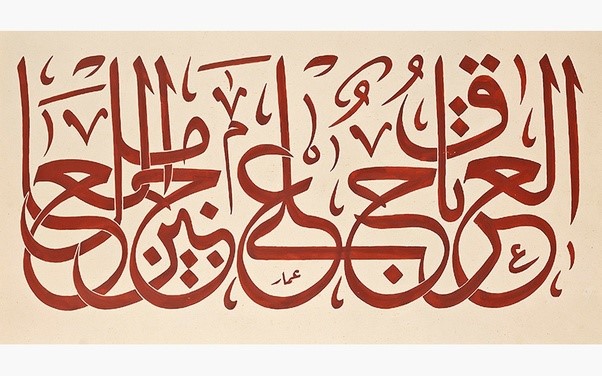 العراق تاج على جبين العالم
عمار